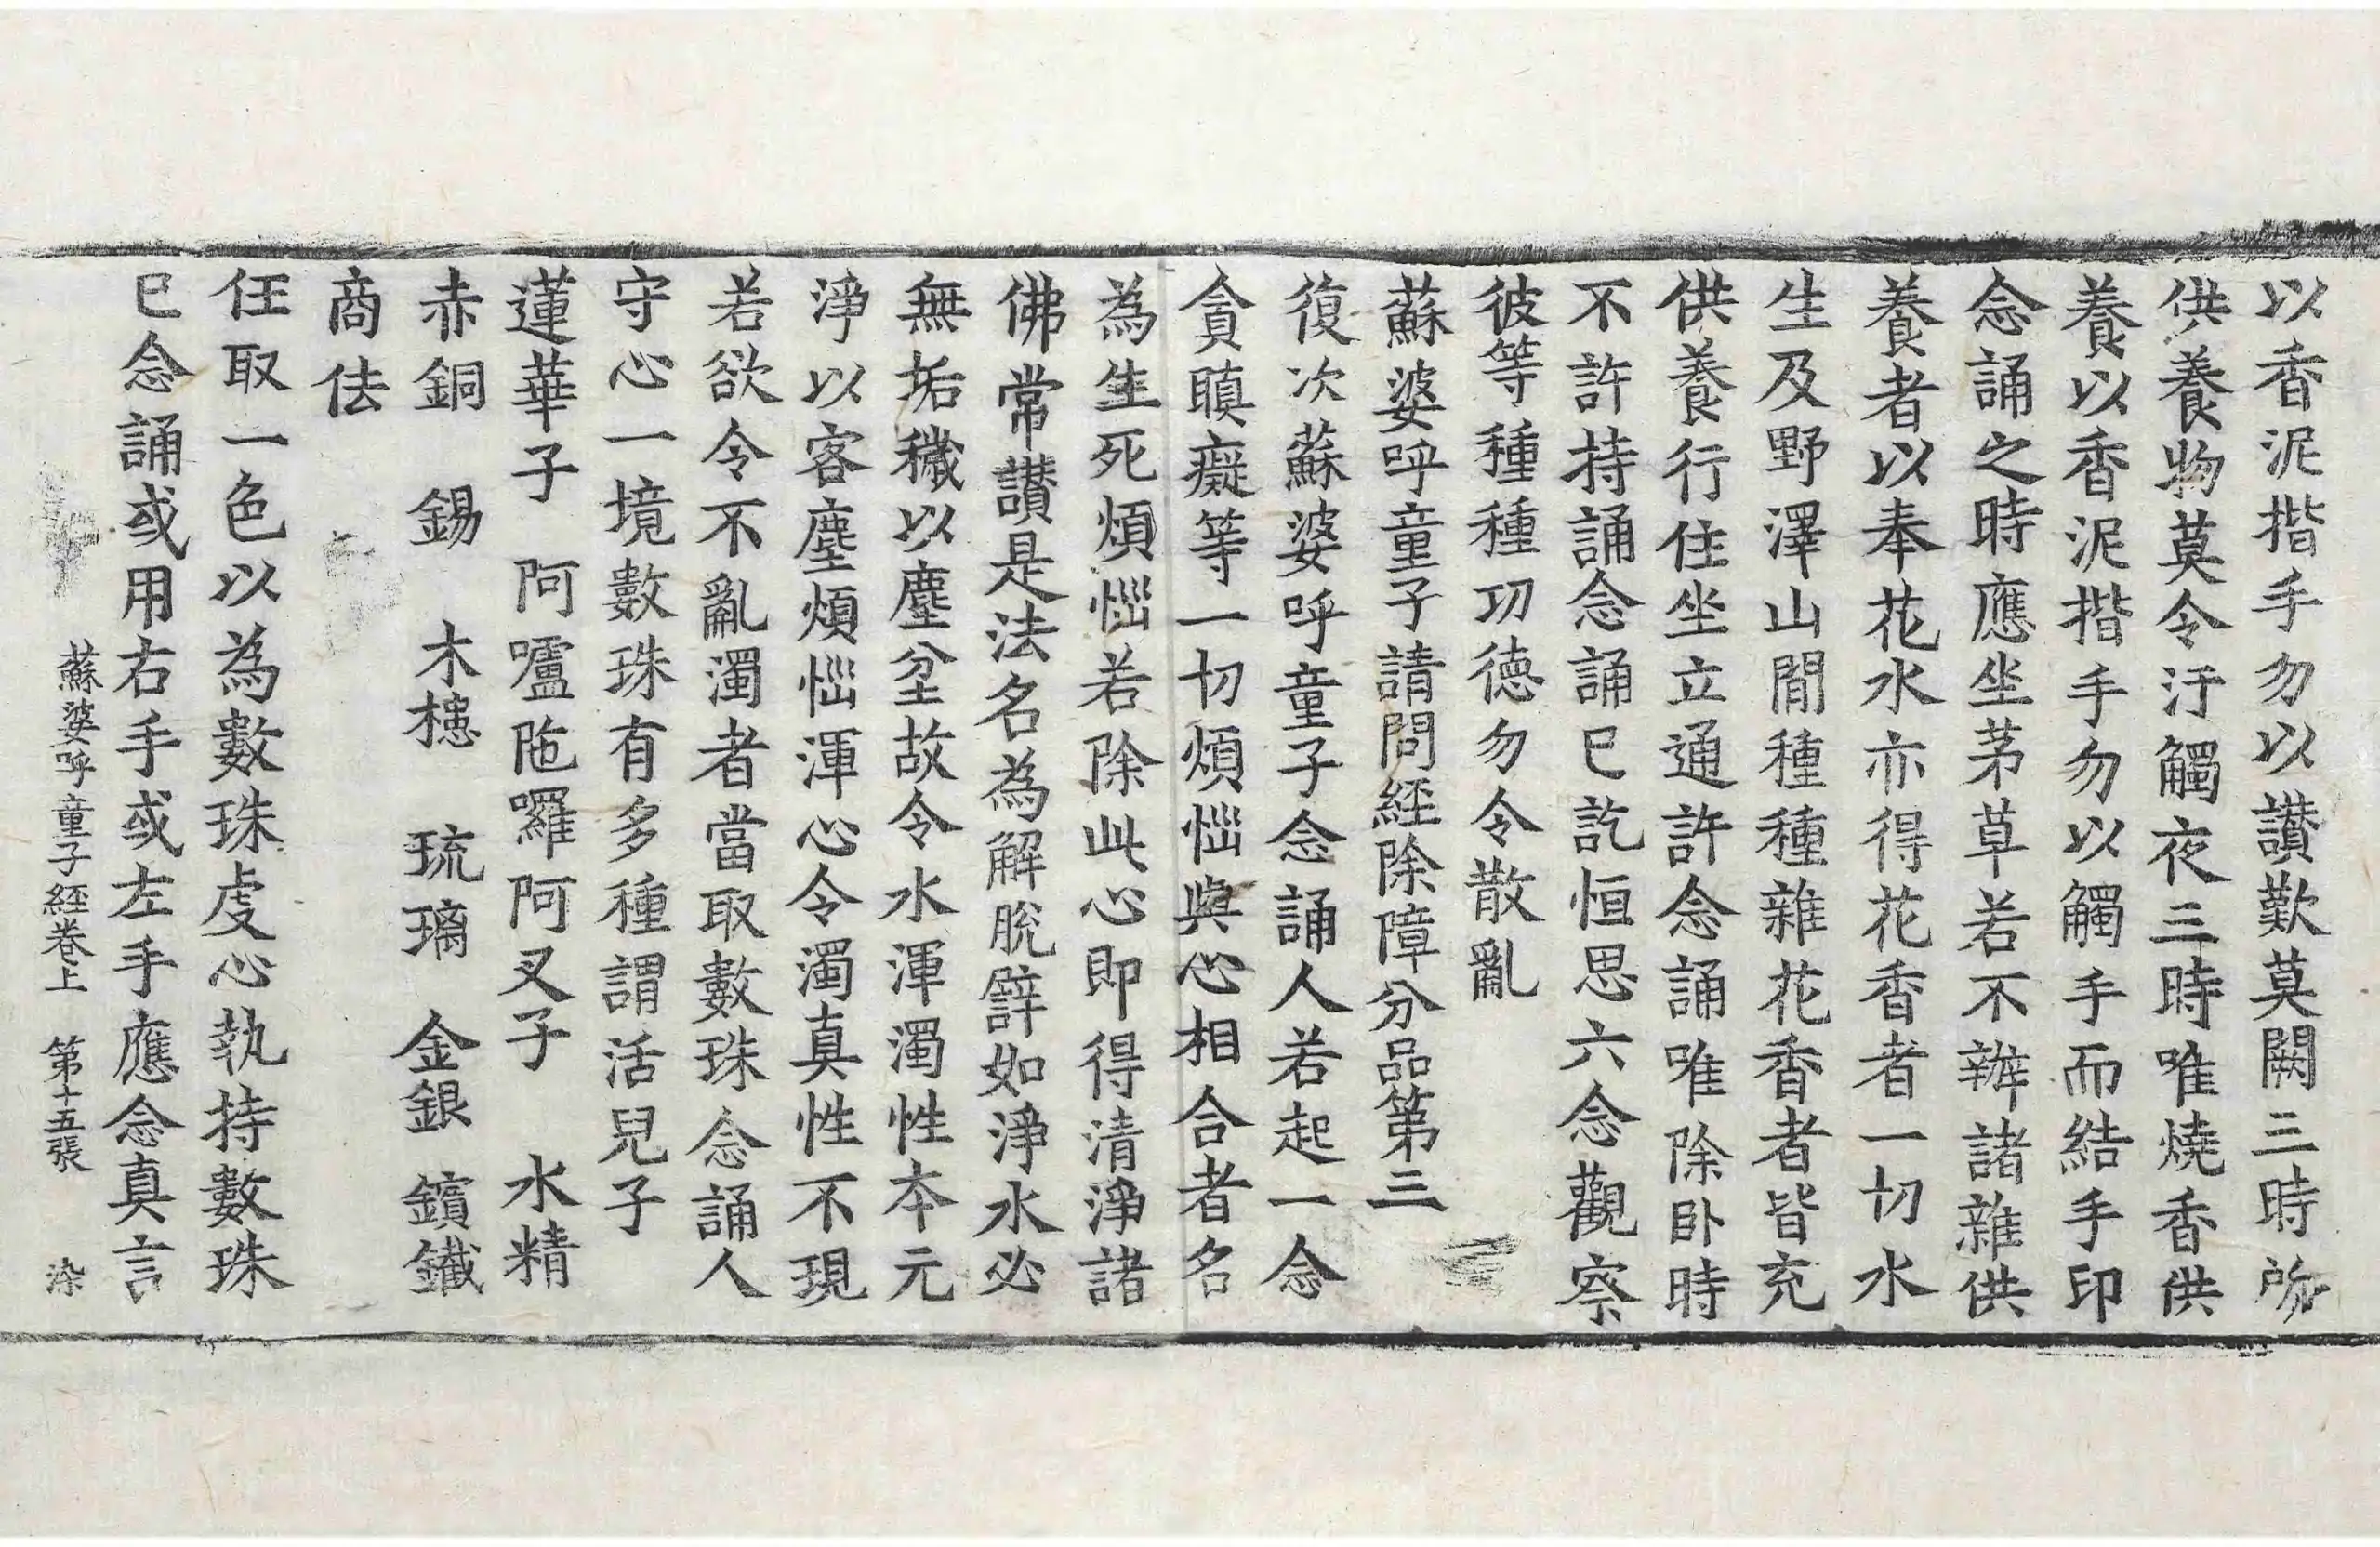 以香泥揩手勿以讃歎莫闕三時所
供養物莫令汙觸夜三時唯燒香供
養以香泥揩手勿以觸手而結手印
念誦之時應坐茅草若不辦諸雜供
養者以奉花水亦得花香者一切水
生及野澤山間種種雜花香者皆充
供養行住坐立通許念誦唯除卧時
不許持誦念誦已訖恒思六念觀察
彼等種種功德勿令散亂
蘇婆呼童子請問經除障分品第三
復次蘇婆呼童子念誦人若起一念
貪瞋癡等一切煩惱與心相合者名
為生死煩惱若除此心即得清淨諸
佛常讃是法名為解脫譬如淨水必
無垢穢以塵坌故令水渾濁性本元
淨以客塵煩惱渾心令濁真性不現
若欲令不亂濁者當取數珠念誦人
守心一境數珠有多種謂活兒子
蓮華子 阿嚧陁囉阿叉子 水精
赤銅 錫 木槵 琉璃 金銀 鑌鐵
商佉
任取一色以為數珠虔心執持數珠
已念誦或用右手或左手應念真言
蘇婆呼童子經卷上 第十五張 染